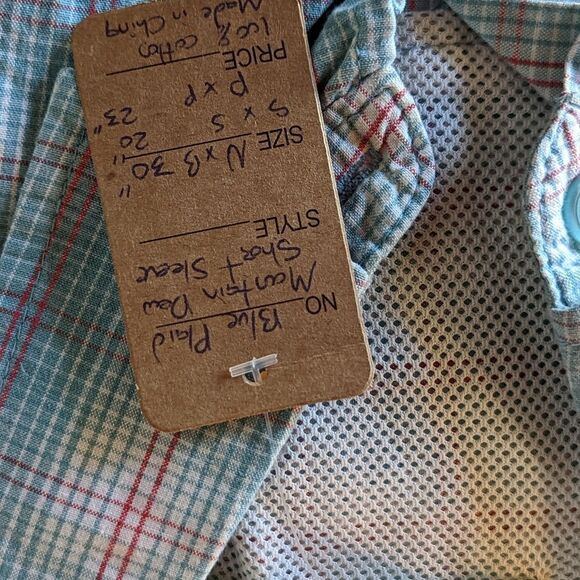 Blue Plaid
NO
Mountain Dew
Short Sleeve
STYLE
N x B 30"
SIZE
S x S 20"
P x P 23"
PRICE
100% cotton
Made in China